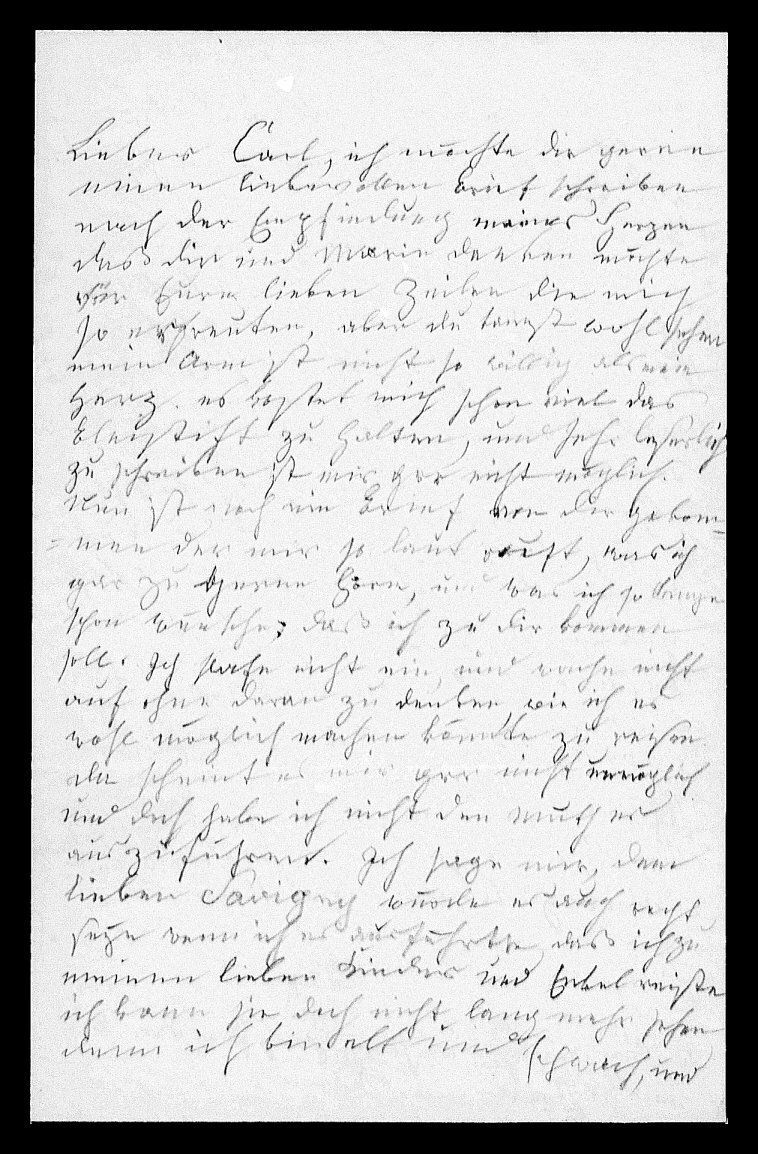 Lieber Carl, ich möchte dir gerne
einen liebevollen Brief schreiben
nach der Empfindung meines Herzen
daß dir und Marie danken möchte
für Eure lieben Zeilen die mich
so erfreuten, aber du kanst wohl sehen
mein Arm ist nicht so willig als mein
Herz. es kostet mich schon viel das
Bleistift zu halten, und sehr leserlich
zu schreiben ist mir gar nicht möglich.
Nun ist noch ein Brief von dir gekom-
=men der mir so laut ruft, was ich
gar zu gerne höre, und was ich so lange
schon wünsche; daß ich zu dir kommen
soll. Ich slafe nicht ein, und wache nicht
auf ohne daran zu denken, wie ich es
wohl möglich machen könnte zu reisen.
da scheint es mir gar nicht unmöglich
und doch habe ich nicht den Muth es
auszuführen. Ich sage mir, dem
lieben Savigny würde es auch recht
seyn wenn ich es ausführte, daß ich zu
meinen lieben Kinder und Enkel reiste
ich kann sie doch nicht lang mehr sehen
denn ich bin alt und schwach, und